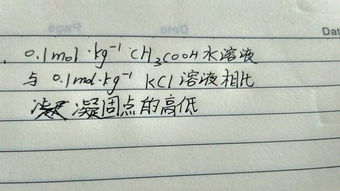 Dat
0.1mol·kg⁻¹ CH₃COOH水溶液
与 0.1mol·kg⁻¹ KCl 溶液相比
凝固点的高低